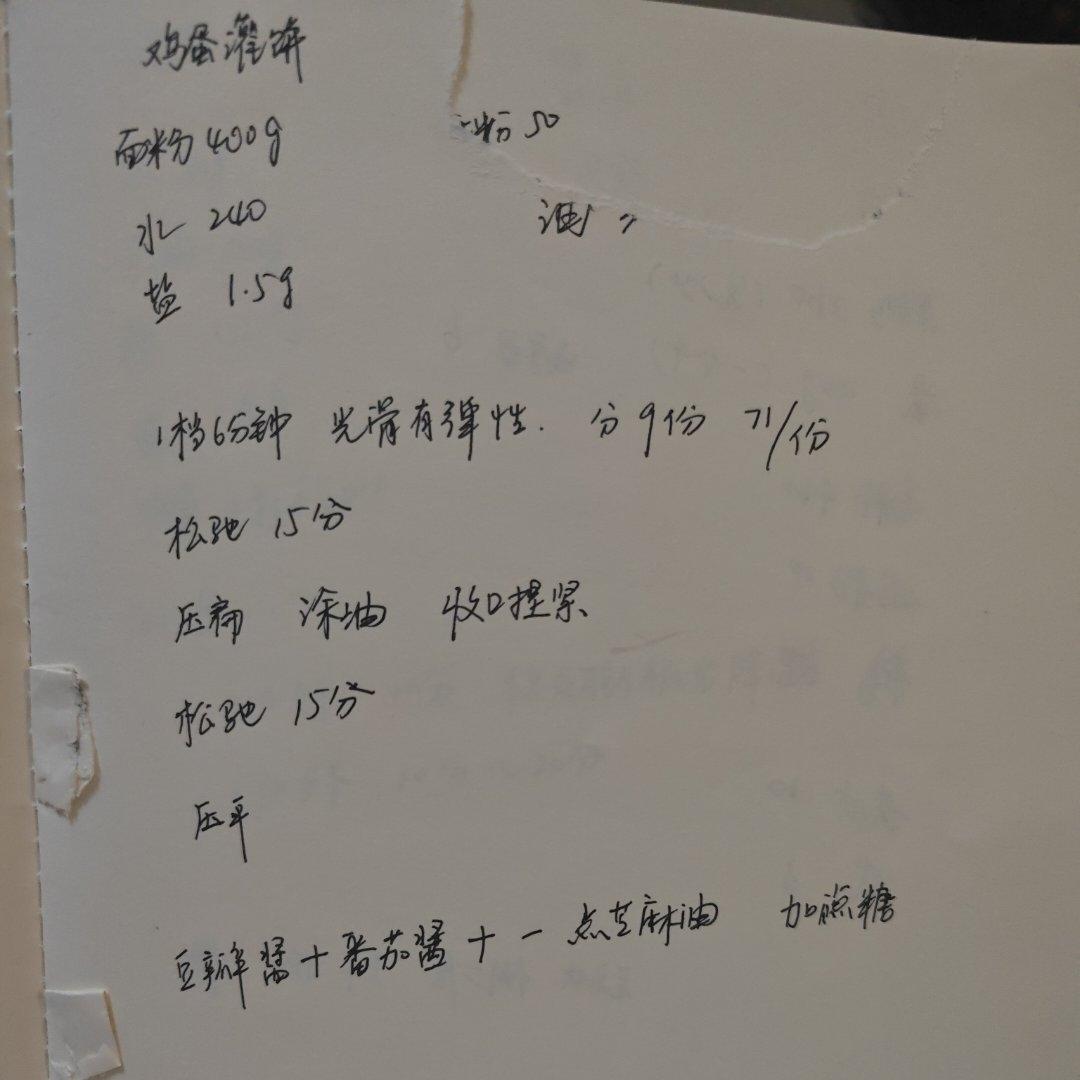 鸡蛋灌饼
面粉 400g 粉 50
水 240 油 〃
盐 1.5g
1档6分钟 光滑有弹性. 分9份 71/份
松驰 15分
压扁 涂油 收口捏紧
松驰 15分
压平
豆瓣酱+番茄酱+一点芝麻油 加点糖